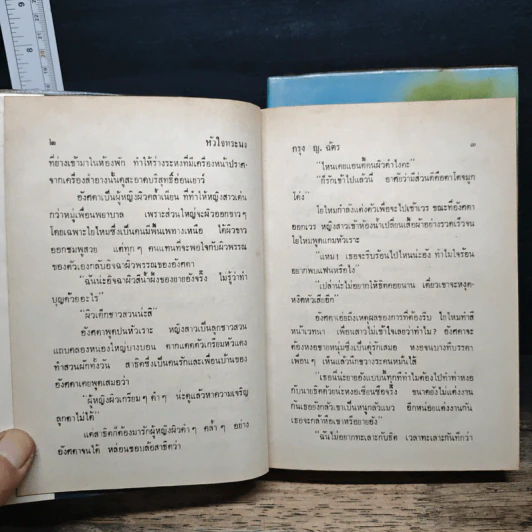 ๒ หัวใจทระนง
ที่ย่างเข้ามาในห้องพัก ทำให้ร่างระหงที่มีเครื่องหน้าปราศ-
จากเครื่องสำอางนั้นดูสะอาดบริสุทธิ์อ่อนเยาว์
อังศดาเป็นผู้หญิงผิวคล้ำเนียน ที่ทำให้หญิงสาวเด่น
กว่าหมู่เพื่อนพยาบาล เพราะส่วนใหญ่จะผิวออกขาวๆ
โดยเฉพาะไอใหมซึ่งเป็นคนเมืองเหนือ ได้ผิวขาว
ออกชมพูสวย แต่ทุกๆ คนแทนที่จะพอใจกับผิวพรรณ
ของตัวเองกลับอิจฉาผิวพรรณของอังศดา
"ฉันน่ะอิจฉาผิวสีน้ำผึ้งของยายอังจริ๊ง ไม่รู้ว่าทำ
บุญด้วยอะไร"
"ผิวเด็กชาวสวนน่ะสิ"
อังศดาพูดปนหัวเราะ หญิงสาวเป็นลูกชาวสวน
แถบคลองหนองใหญ่บางบอน ตากแดดตัวเกรียมหัวแดง
ทำสวนผักทั้งวัน สาธิตซึ่งเป็นคนรักและเพื่อนบ้านของ
อังศดาเคยพูดเสมอว่า
"ผู้หญิงผิวเกรียมๆ ดำๆ น่ะดูแล้วหาความเจริญ
ลูกตาไม่ได้"
แต่สาธิตก็ต้องมารักผู้หญิงผิวดำๆ คล้ำๆ อย่าง
อังศดาจนได้ หล่อนชอบล้อสาธิตว่า
กรุง ญ. ฉัตร ๓
"ไหนเคยแอนตี้คนผิวดำไงคะ"
"ก็รักเข้าไปแล้วนี่ อาศัยว่ามีส่วนดีคือตาโตจมูก
โด่ง"
ไอใหมกำลังแต่งตัวเพื่อจะไปเข้าเวร ขณะที่อังศดา
ออกเวร หญิงสาวเข้าห้องน้ำเปลี่ยนเสื้อผ้าอย่างรวดเร็วจน
ไอใหมพูดแกมหัวเราะ
"แหม! เธอจะรีบร้อนไปไหนน่ะอัง ทำไมใจร้อน
อยากพบแฟนหรือไง"
"เปล่าน่ะไม่อยากให้ธิตคอยนาน เดี๋ยวเขาจะหงุด-
หงิดหัวเสียอีก"
อังศดาเอ่ยถึงเหตุผลของการที่ต้องรีบ ไอใหมทำสี
หน้าเวทนา เพื่อนสาวไม่เข้าใจเลยว่าทำไม? อังศดาจะ
ต้องหงอชายหนุ่มซึ่งเป็นคู่รักเสมอ หงอจนบางทีบรรดา
เพื่อนๆ เห็นแล้วนึกขวางระคนหมั่นไส้
"เธอนี่น่ะยายอังแบบนี้ทุกทีทำไมต้องไปทำท่าหงอ
กับนายธิตด้วยน่ะหงอเชียวซื่อจริ๊ง ขนาดยังไม่แต่งงาน
กันเธอยังกลัวเขาเป็นหนูกลัวแมว อีกหน่อยแต่งงานกัน
เธอจะกล้าหือเขาหรือยายอัง"
"ฉันไม่อยากทะเลาะกับธิต เวลาทะเลาะกันทีกว่า